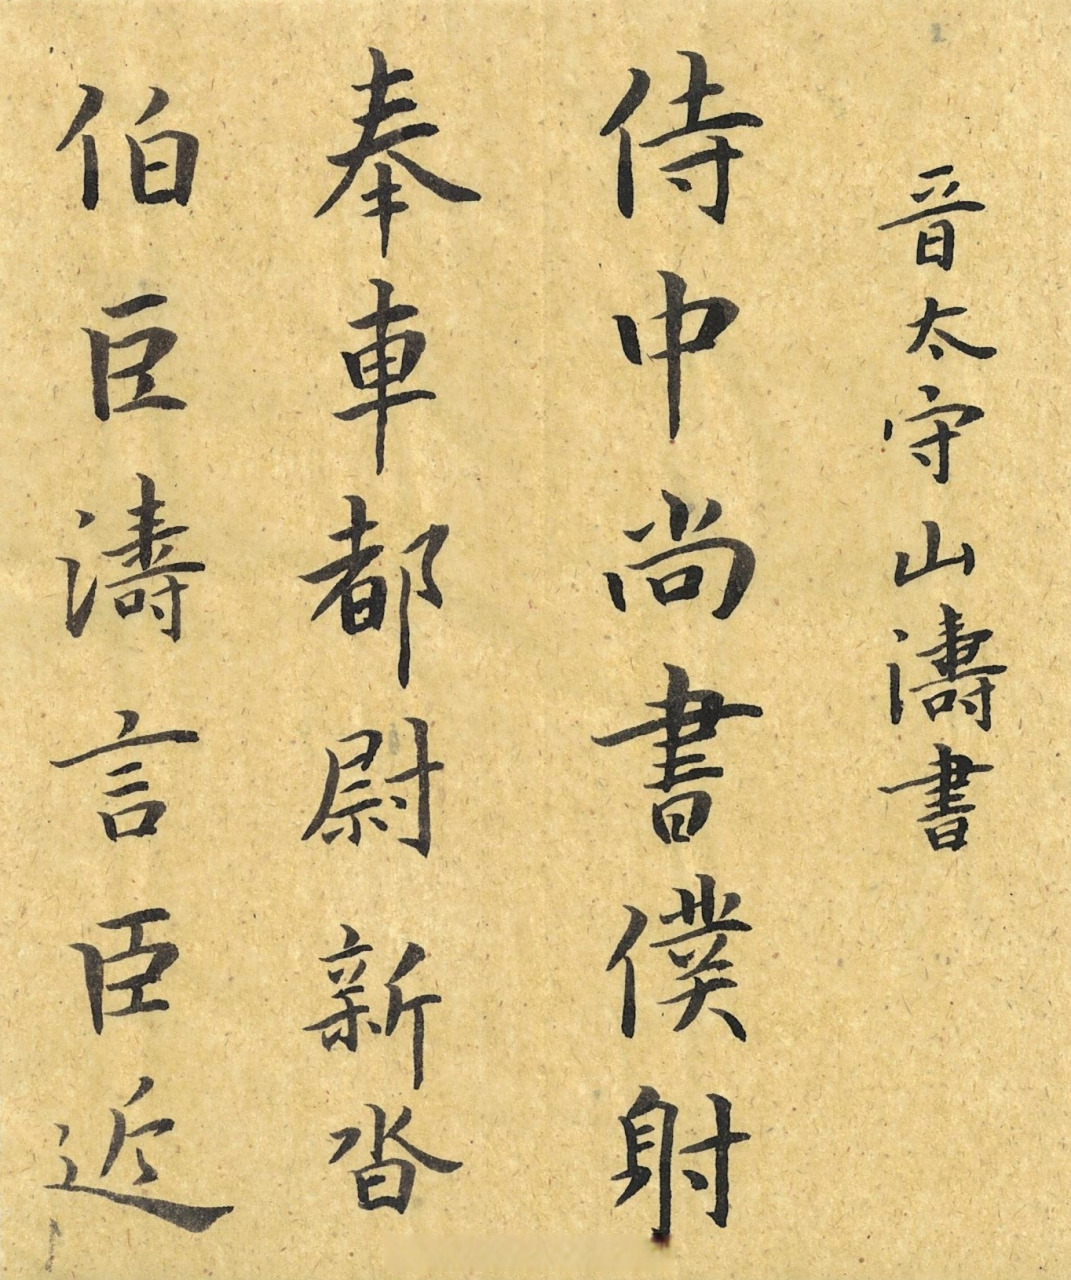 晉太守山濤書
侍中尚書僕射
奉車都尉新沓
伯臣濤言臣近